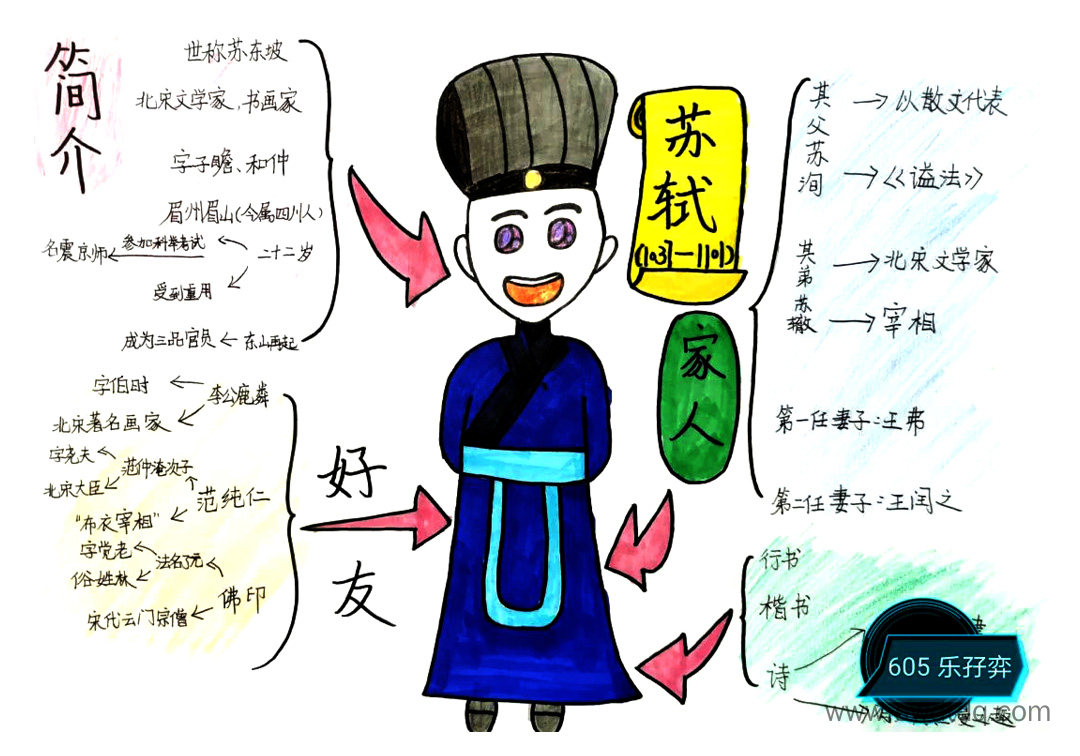 简介
世称苏东坡
北宋文学家、书画家
字子瞻、和仲
眉州眉山(今属四川人)
二十二岁
参加科举考试
名震京师
受到重用
东山再起
成为三品官员
苏轼
(1031—1101)
家人
其父苏洵
以散文代表
《谥法》
其弟苏辙
北宋文学家
宰相
第一任妻子:王弗
第二任妻子:王闰之
好友
李公麟
字伯时
北宋著名画家
范纯仁
范仲淹次子
字尧夫
北宋大臣
“布衣宰相”
佛印
法名了元
字觉老
俗姓林
宋代云门宗僧
行书
楷书
诗
605 乐孖弈